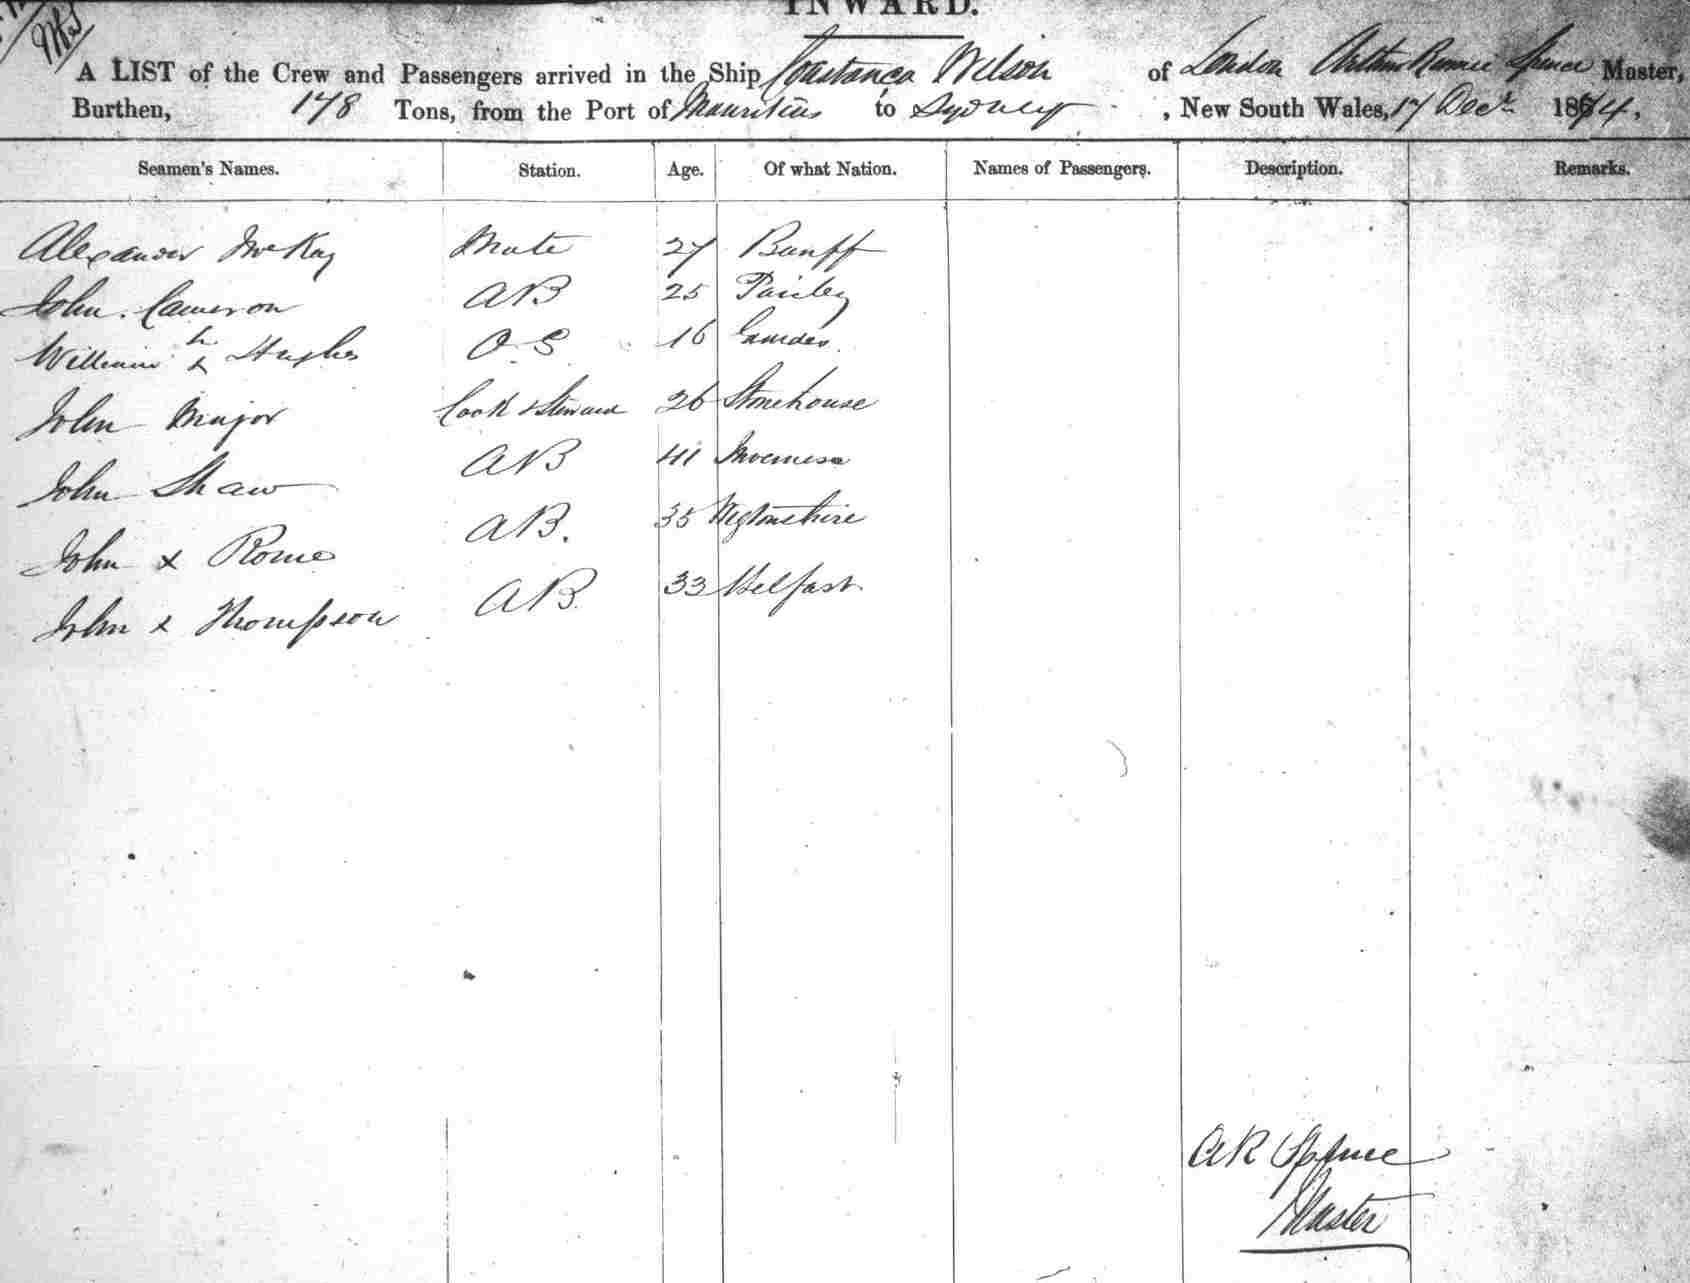 INWARD.
A LIST of the Crew and Passengers arrived in the Ship Constance Wilson of London Arthur Rennie Spence Master,
Burthen, 178 Tons, from the Port of Mauritius to Sydney, New South Wales, 17 Decr 1864,
Seamen's Names. Station. Age. Of what Nation. Names of Passengers. Description. Remarks.
Alexander McKay Mate 27 Banff
John Cameron AB 25 Paisley
William x Hughes O.S 16
John Major Cook & Steward 26 Stonehouse
John Shaw AB 41 Inverness
John x Rome AB. 35 Wigtonshire
John x Thompson AB. 33 Belfast
AR Spence
Master